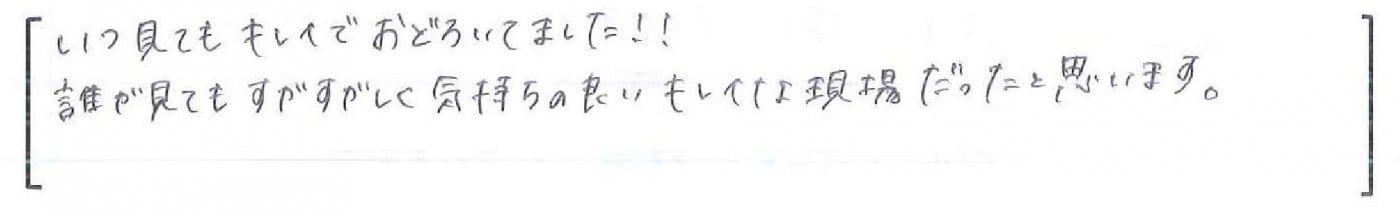 いつ見てもキレイでおどろいてました!!
誰が見てもすがすがしく気持ちの良いキレイな現場だったと思います。